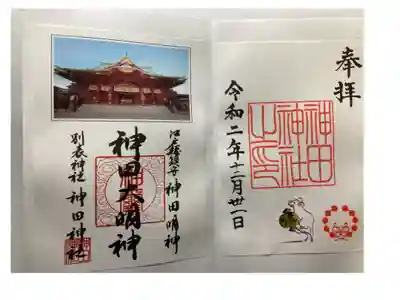 奉拝
神田
神社
之印
令和二年十二月丗一日
江戸総鎮守 神田明神
神田大明神
別表神社 神田神社